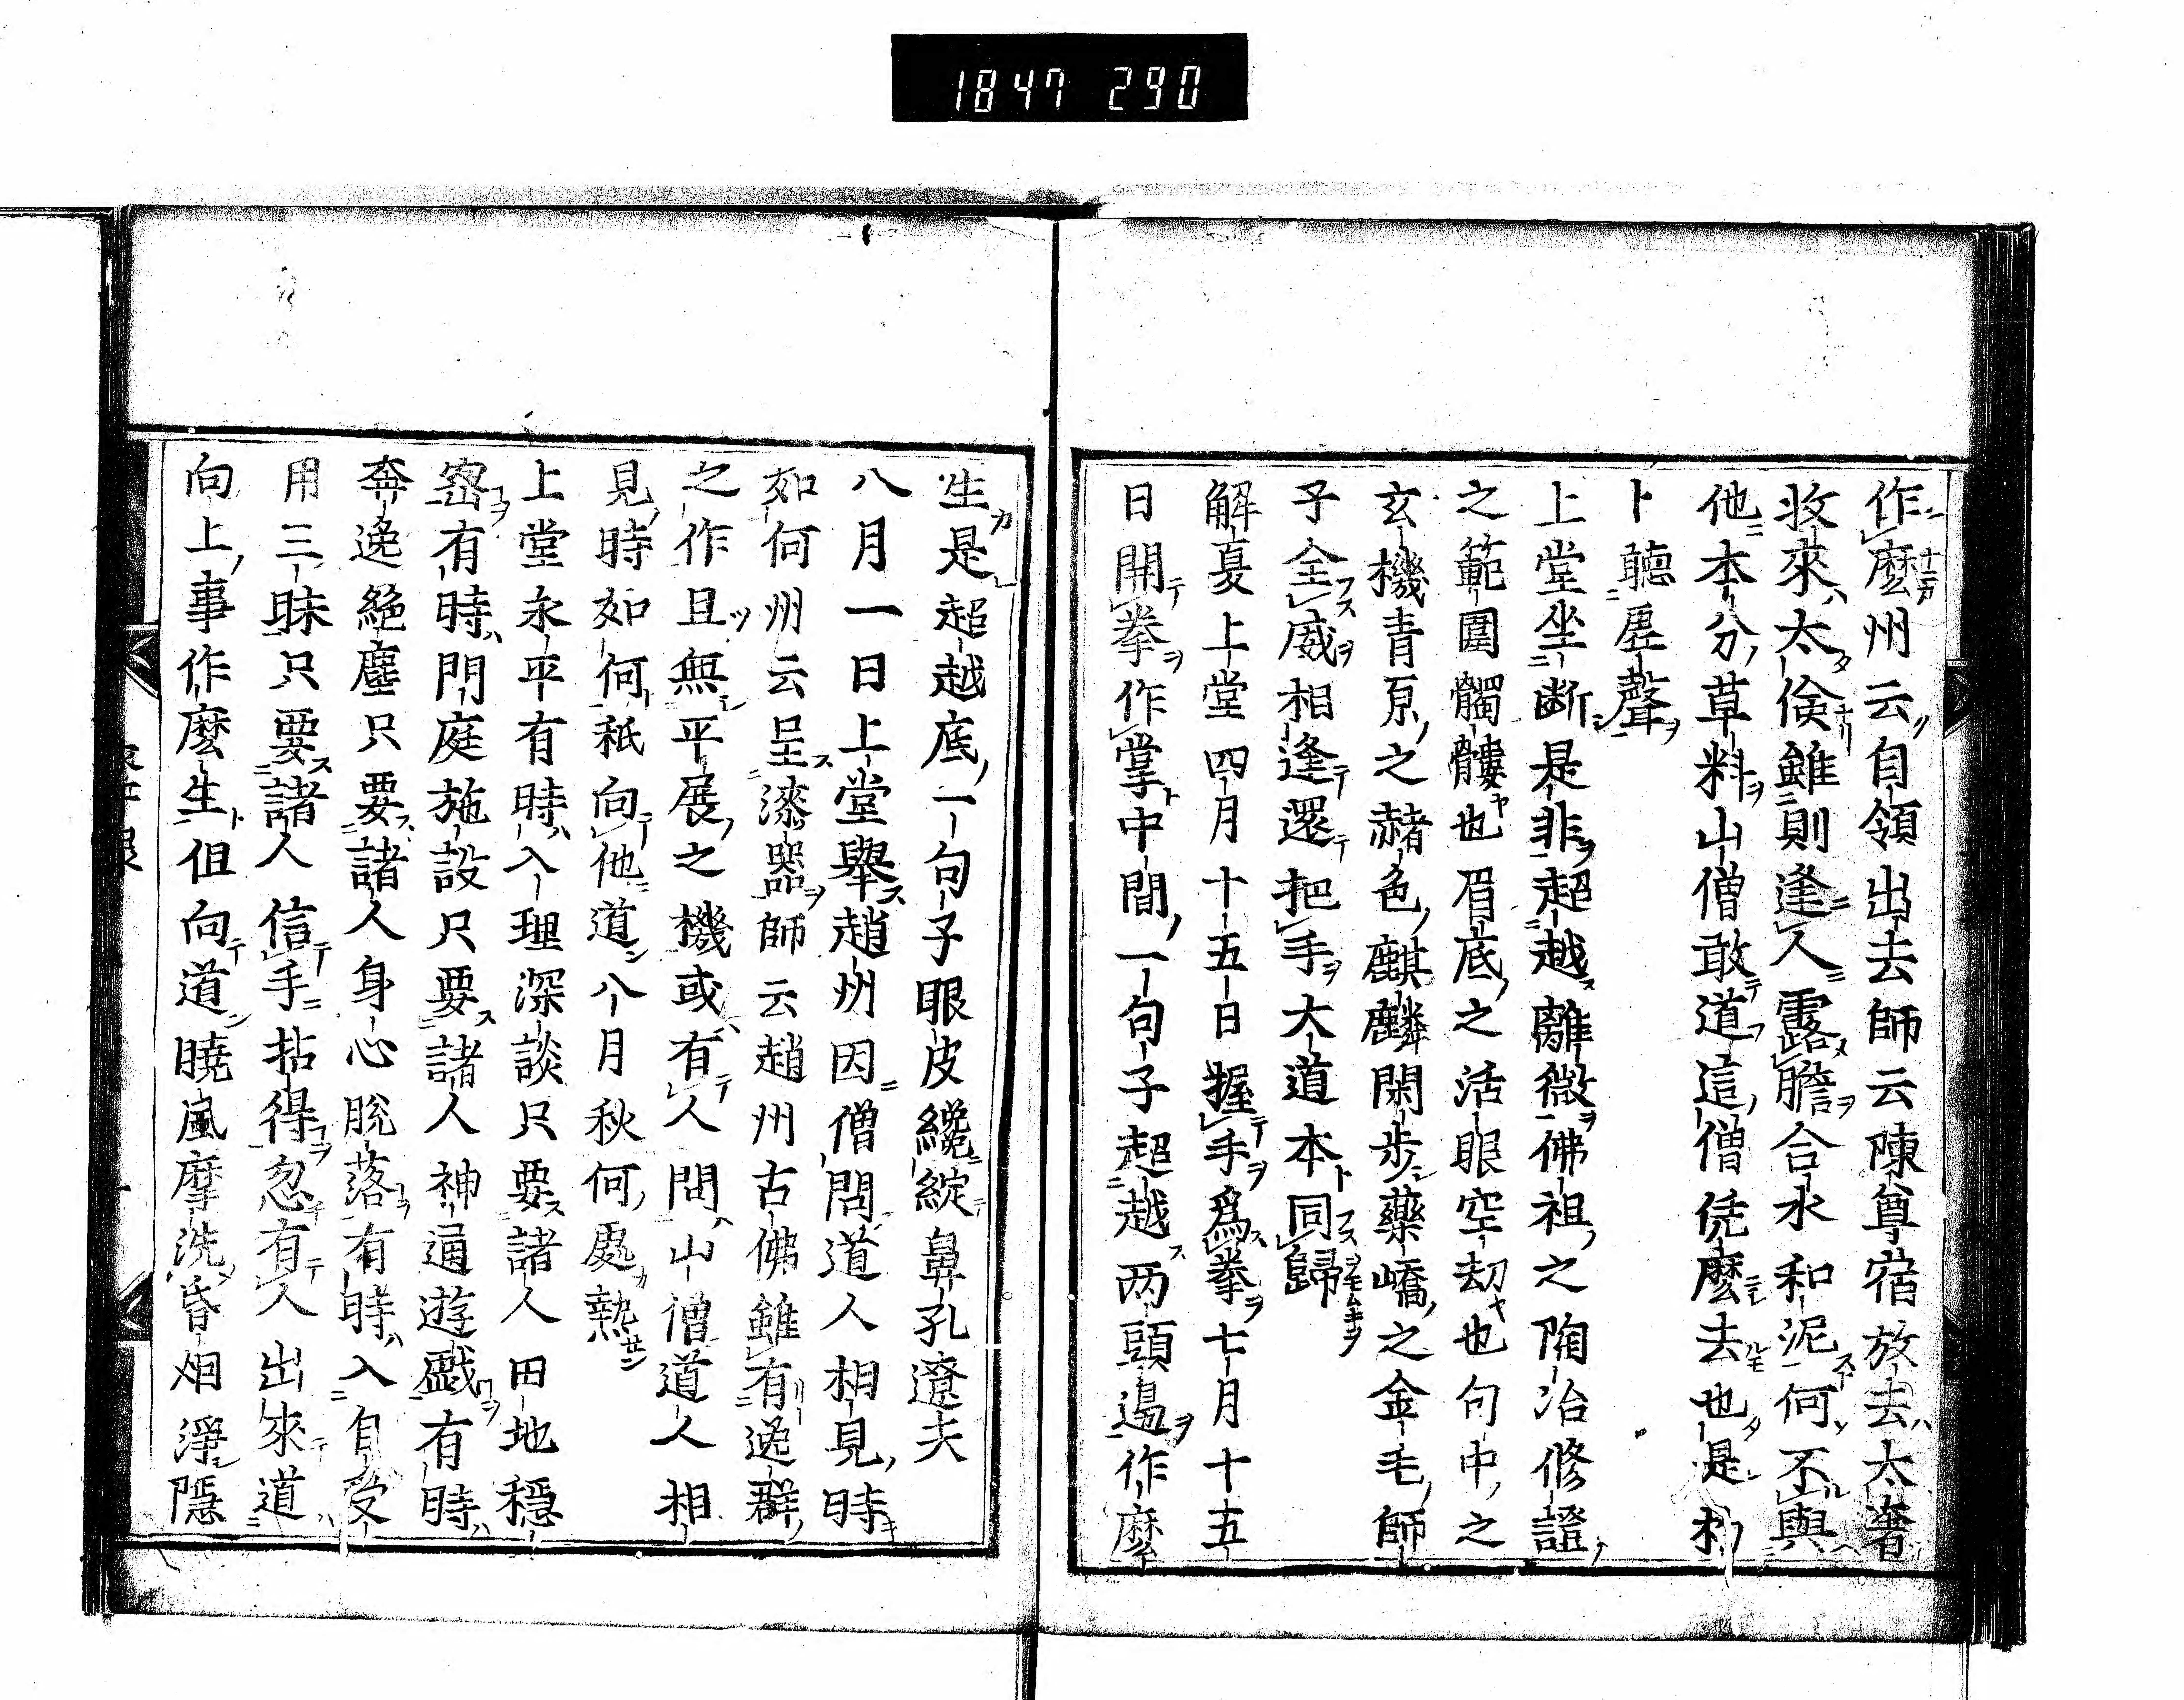 1847 290
作麼州云自領出去師云陳尊宿放去太奢
收來太儉雖則逢人露膽合水和泥何不與
他本分草料山僧敢道這僧恁麼去也是杓
卜聽虛聲
上堂坐斷是非超越離微佛祖之陶冶修證
之範圍髑髏也眉底之活眼空劫也句中之
玄機青原之赭色麒麟閑步藥嶠之金毛師
子全威相逢還把手大道本同歸
解夏上堂四月十五日握手爲拳七月十五
日開拳作掌中間一句子超越两頭邊作麼
生是超越底一句子眼皮纔綻鼻孔遼天
八月一日上堂舉趙州因僧問道人相見時
如何州云呈漆器師云趙州古佛雖有逸群
之作且無平展之機或有人問山僧道人相
見時如何秖向他道八月秋何處熱
上堂永平有時入理深談只要諸人田地穩
密有時門庭施設只要諸人神通遊戲有時
奔逸絕塵只要諸人身心脫落有時入自受
用三昧只要諸人信手拈得忽有人出來道
向上事作麼生但向道曉風摩洗昏烟淨隱